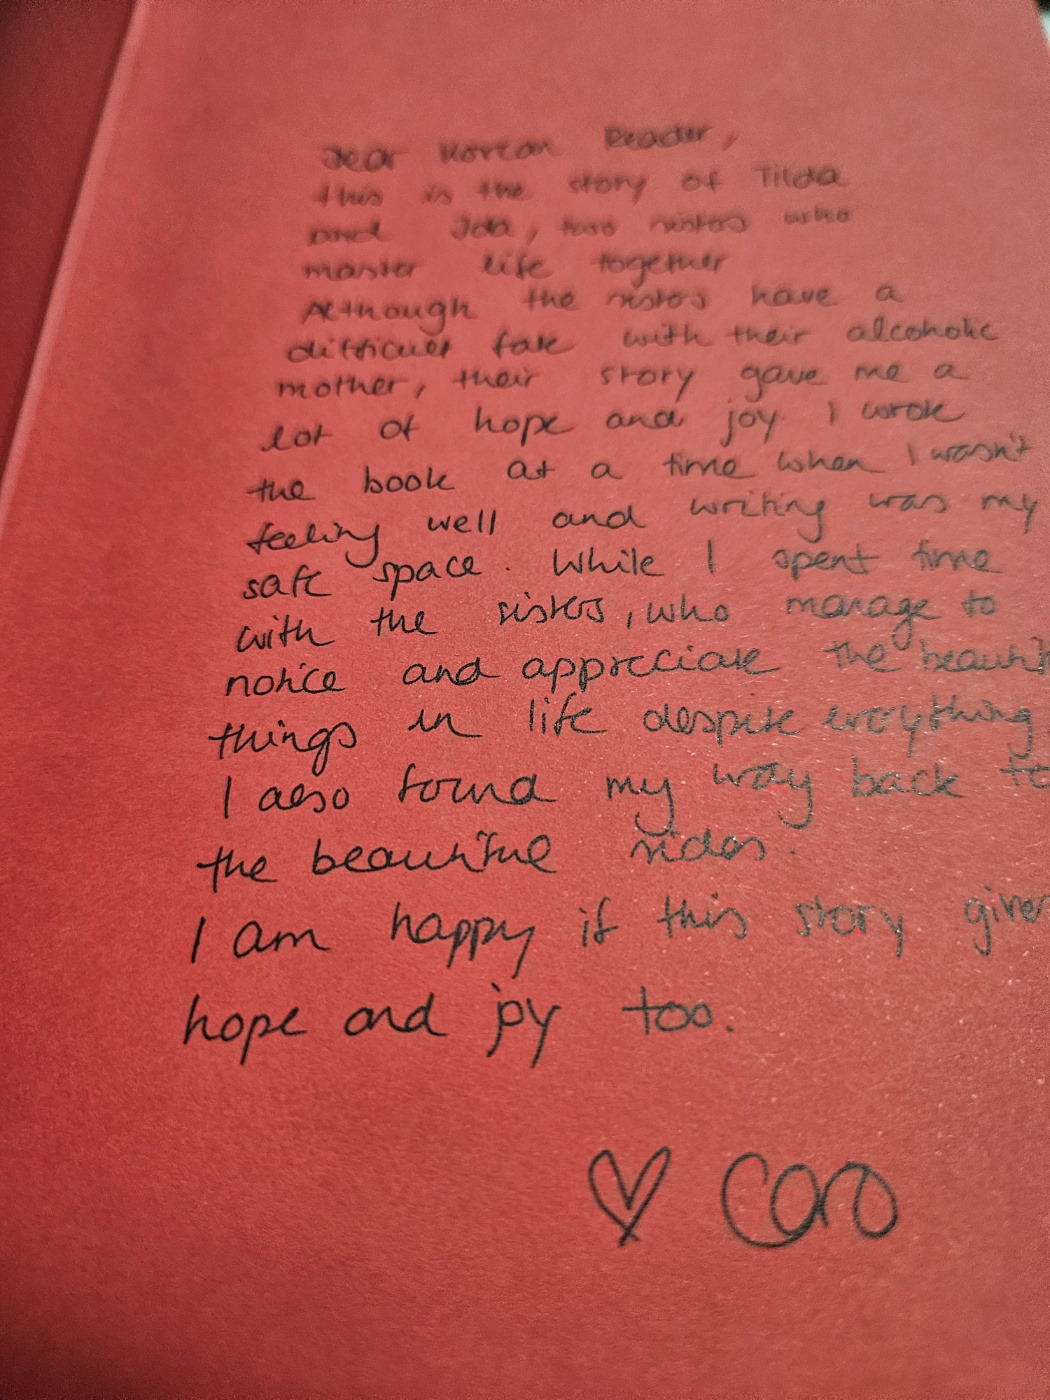 Dear Korean Reader,
this is the story of Tilda
and Ida, two sisters who
master life together
Although the sisters have a
difficult fate with their alcoholic
mother, their story gave me a
lot of hope and joy. I wrote
the book at a time when I wasn't
feeling well and writing was my
safe space. While I spent time
with the sisters, who manage to
notice and appreciate the beautif
things in life despite everything,
I also found my way back to
the beautiful sides.
I am happy if this story gives
hope and joy too.
♡ Caro